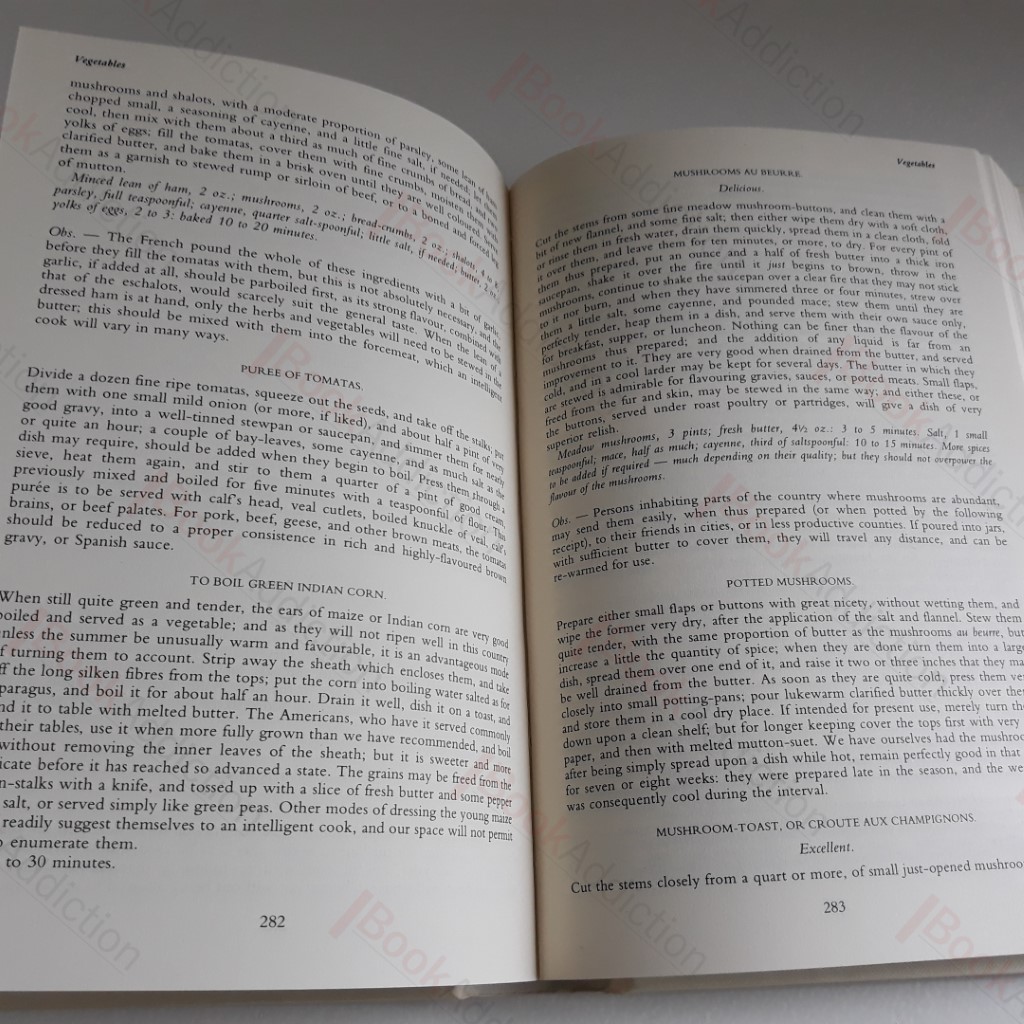 Vegetables
mushrooms and shalots, with a moderate proportion of parsley, some lean of ham
chopped small, a seasoning of cayenne, and a little fine salt, if needed; let them
cool, then mix with them about a third as much of fine crumbs of bread, and two
yolks of eggs; fill the tomatas, cover them with fine crumbs, moisten them with
clarified butter, and bake them in a brisk oven until they are well coloured. Serve
them as a garnish to stewed rump or sirloin of beef, or to a boned and forced leg
of mutton.
Minced lean of ham, 2 oz.; mushrooms, 2 oz.; bread-crumbs, 2 oz.; shalots, 4 to
parsley, full teaspoonful; cayenne, quarter salt-spoonful; little salt, if needed; butter, 2 oz.;
yolks of eggs, 2 to 3: baked 10 to 20 minutes.
Obs. — The French pound the whole of these ingredients with a bit of garlic,
before they fill the tomatas with them, but this is not absolutely necessary, and the
garlic, if added at all, should be parboiled first, as its strong flavour, combined with
that of the eschalots, would scarcely suit the general taste. When the lean of a
dressed ham is at hand, only the herbs and vegetables will need to be stewed in the
butter; this should be mixed with them into the forcemeat, which an intelligent
cook will vary in many ways.
PUREE OF TOMATAS.
Divide a dozen fine ripe tomatas, squeeze out the seeds, and take off the stalks; put
them with one small mild onion (or more, if liked), and about half a pint of very
good gravy, into a well-tinned stewpan or saucepan, and simmer them for nearly
or quite an hour; a couple of bay-leaves, some cayenne, and as much salt as the
dish may require, should be added when they begin to boil. Press them through a
sieve, heat them again, and stir to them a quarter of a pint of good cream,
previously mixed and boiled for five minutes with a teaspoonful of flour. This
purée is to be served with calf's head, veal cutlets, boiled knuckle of veal, calf's
brains, or beef palates. For pork, beef, geese, and other brown meats, the tomatas
should be reduced to a proper consistence in rich and highly-flavoured brown
gravy, or Spanish sauce.
TO BOIL GREEN INDIAN CORN.
When still quite green and tender, the ears of maize or Indian corn are very good
boiled and served as a vegetable; and as they will not ripen well in this country
unless the summer be unusually warm and favourable, it is an advantageous mode
f turning them to account. Strip away the sheath which encloses them, and take
ff the long silken fibres from the tops; put the corn into boiling water salted as for
paragus, and boil it for about half an hour. Drain it well, dish it on a toast, and
nd it to table with melted butter. The Americans, who have it served commonly
their tables, use it when more fully grown than we have recommended, and boil
without removing the inner leaves of the sheath; but it is sweeter and more
icate before it has reached so advanced a state. The grains may be freed from the
n-stalks with a knife, and tossed up with a slice of fresh butter and some pepper
salt, or served simply like green peas. Other modes of dressing the young maize
readily suggest themselves to an intelligent cook, and our space will not permit
o enumerate them.
to 30 minutes.
282
Vegetables
MUSHROOMS AU BEURRE.
Delicious.
Cut the stems from some fine meadow mushroom-buttons, and clean them with a
bit of new flannel, and some fine salt; then either wipe them dry with a soft cloth,
or rinse them in fresh water, drain them quickly, spread them in a clean cloth, fold
it over them, and leave them for ten minutes, or more, to dry. For every pint of
them thus prepared, put an ounce and a half of fresh butter into a thick iron
saucepan, shake it over the fire until it just begins to brown, throw in the
mushrooms, continue to shake the saucepan over a clear fire that they may not stick
to it nor burn, and when they have simmered three or four minutes, strew over
them a little salt, some cayenne, and pounded mace; stew them until they are
perfectly tender, heap them in a dish, and serve them with their own sauce only,
for breakfast, supper, or luncheon. Nothing can be finer than the flavour of the
mushrooms thus prepared; and the addition of any liquid is far from an
improvement to it. They are very good when drained from the butter, and served
cold, and in a cool larder may be kept for several days. The butter in which they
are stewed is admirable for flavouring gravies, sauces, or potted meats. Small flaps,
freed from the fur and skin, may be stewed in the same way; and either these, or
the buttons, served under roast poultry or partridges, will give a dish of very
superior relish.
Meadow mushrooms, 3 pints; fresh butter, 4½ oz.: 3 to 5 minutes. Salt, 1 small
teaspoonful; mace, half as much; cayenne, third of saltspoonful: 10 to 15 minutes. More spices
to be added if required — much depending on their quality; but they should not overpower the
flavour of the mushrooms.
Obs. — Persons inhabiting parts of the country where mushrooms are abundant,
may send them easily, when thus prepared (or when potted by the following
receipt), to their friends in cities, or in less productive counties. If poured into jars,
with sufficient butter to cover them, they will travel any distance, and can be
re-warmed for use.
POTTED MUSHROOMS.
Prepare either small flaps or buttons with great nicety, without wetting them, and
wipe the former very dry, after the application of the salt and flannel. Stew them
quite tender, with the same proportion of butter as the mushrooms au beurre, but
increase a little the quantity of spice; when they are done turn them into a large
dish, spread them over one end of it, and raise it two or three inches that they ma
be well drained from the butter. As soon as they are quite cold, press them ver
closely into small potting-pans; pour lukewarm clarified butter thickly over the
and store them in a cool dry place. If intended for present use, merely turn the
down upon a clean shelf; but for longer keeping cover the tops first with very
paper, and then with melted mutton-suet. We have ourselves had the mushroo
after being simply spread upon a dish while hot, remain perfectly good in that
for seven or eight weeks: they were prepared late in the season, and the we
was consequently cool during the interval.
MUSHROOM-TOAST, OR CROUTE AUX CHAMPIGNONS.
Excellent.
Cut the stems closely from a quart or more, of small just-opened mushroo
283